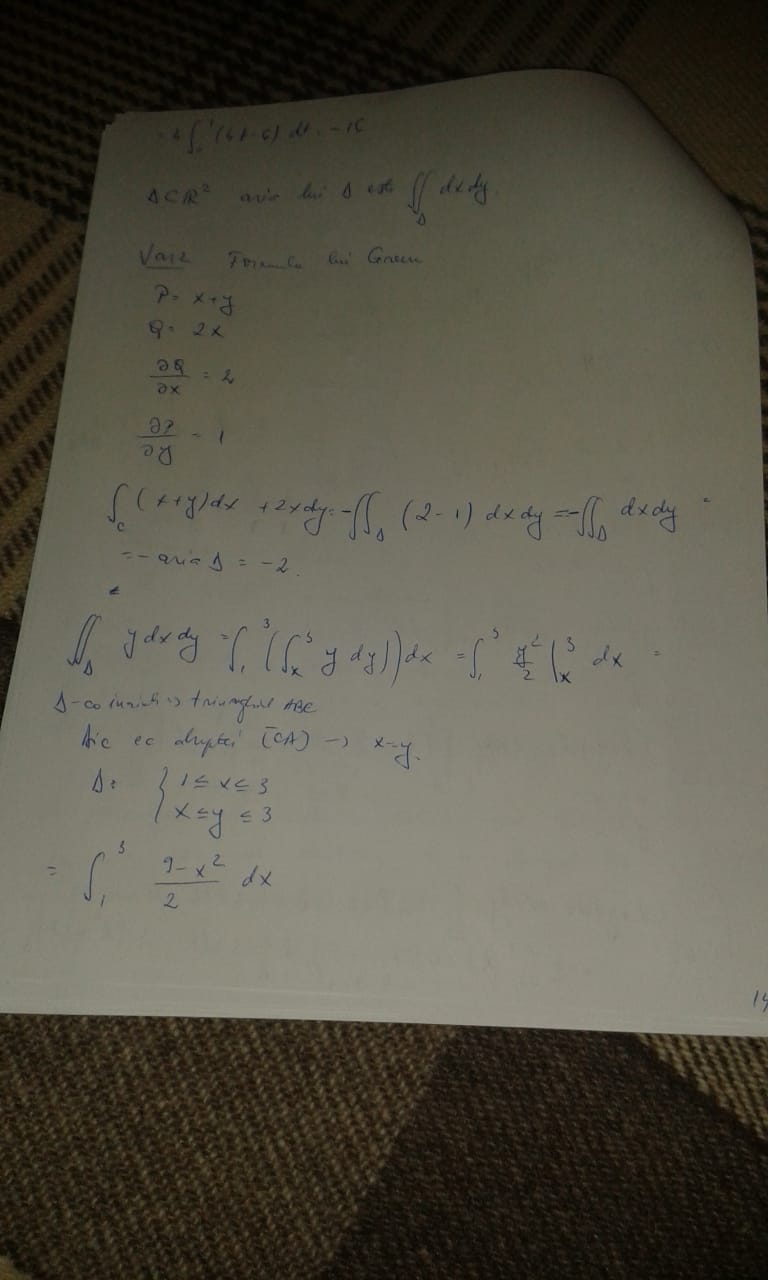 ∫ (4t-6) dt = -16
Δ⊂ℝ² aria lui Δ este ∬_Δ dxdy.
Var 2 Formula lui Green
P= x+y
Q= 2x
∂Q/∂x = 2
∂P/∂y = 1
∫_C (x+y)dx +2xdy = -∬_Δ (2-1) dxdy = -∬_Δ dxdy =
= - aria Δ = -2.
∬_Δ y dxdy = ∫_1^3 (∫_x^3 y dy) dx = ∫_1^3 y²/2 |_x^3 dx =
Δ-interiorul triunghiul ABC
Aic ec dreptei (CA) → x=y.
Δ: { 1≤x≤3
x≤y≤3
= ∫_1^3 (9-x²)/2 dx
14